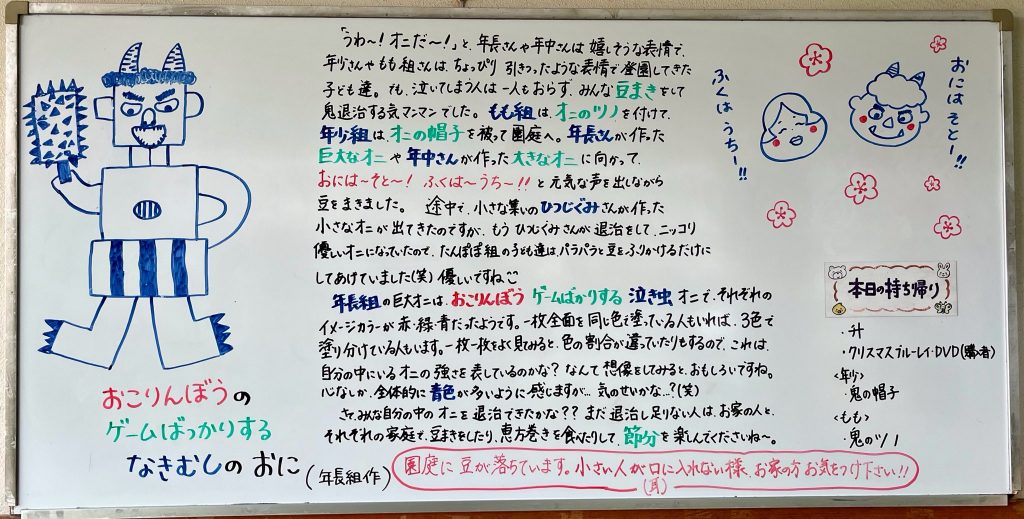 「うわ〜！オニだ〜！」と、年長さんや年中さんは嬉しそうな表情で、
年少さんやもも組さんは、ちょっぴり引きつったような表情で登園してきた
子ども達。でも、泣いてしまう人は一人もおらず、みんな豆まきをして
鬼退治する気マンマンでした。もも組は、オニのツノを付けて、
年少組は、オニの帽子を被って園庭へ。年長さんが作った
巨大なオニや年中さんが作った大きなオニに向かって、
おには〜そと〜！ふくは〜うち〜！！と元気な声を出しながら
豆をまきました。途中で、小さな集いのひつじぐみさんが作った
小さなオニが出てきたのですが、もうひつじぐみさんが退治をして、ニッコリ
優しいオニになっていたので、たんぽぽ組の子ども達は、パラパラと豆をふりかけるだけに
してあげていました(笑)優しいですね
年長組の巨大オニは、おこりんぼう ゲームばかりする 泣き虫オニで、それぞれの
イメージカラーが赤・緑・青だったようです。一枚全面を同じ色で塗っている人もいれば、3色で
塗り分けている人もいます。一枚一枚をよく見てみると、色の割合が違っていたりもするので、これは、
自分の中にいるオニの強さを表しているのかな？なんて想像をしてみると、おもしろいですね。
心なしか、全体的に青色が多いように感じますが…気のせいかな…？(笑)
さて、みんな自分の中のオニを退治できたかな？？まだ退治し足りない人は、お家の人と、
それぞれの家庭で、豆まきをしたり、恵方巻きを食べたりして、節分を楽しんでくださいね〜。
園庭に豆が落ちています。小さい人が口に入れない様、お家の方お気をつけ下さい！！
(耳)
おこりんぼうの
ゲームばっかりする
なきむしの おに
(年長組作)
おにはそとー！！
ふくはうちー！！
本日の持ち帰り
・升
・クリスマスブルーレイ・DVD(購入者)
<年少>
・鬼の帽子
<もも>
・鬼のツノ